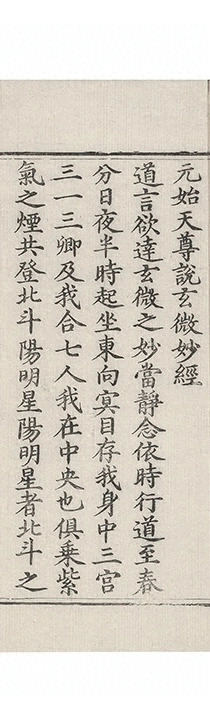 元始天尊說玄微妙經
道言欲達玄微之妙當靜念依時行道至春
分日夜半時起坐東向冥目存我身中三宮
三一三卿及我合七人我在中央也俱乘紫
氣之煙共登北斗陽明星陽明星者北斗之